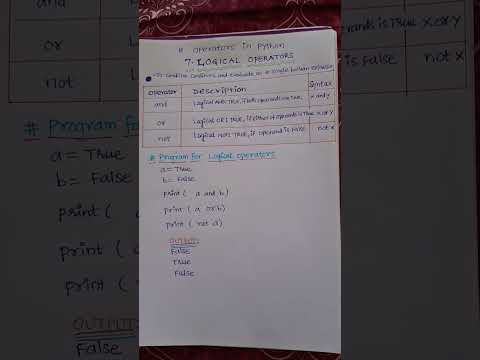 # Operators in Python
7. LOGICAL OPERATORS
Operator Description Syntax
and Logical AND: True, if both operands are True x and y
or Logical OR: True, if either of operands is True x or y
not Logical NOT: TRUE, if operand is False not x
# Program for Logical operators
a = True
b = False
print ( a and b)
print ( a or b)
print ( not a)
OUTPUT:
False
True
False
and
or
not
# Program for
a = True
b = False
print (
print ( a
print (
OUTPUT:
False
perands is True x or y
is False not x